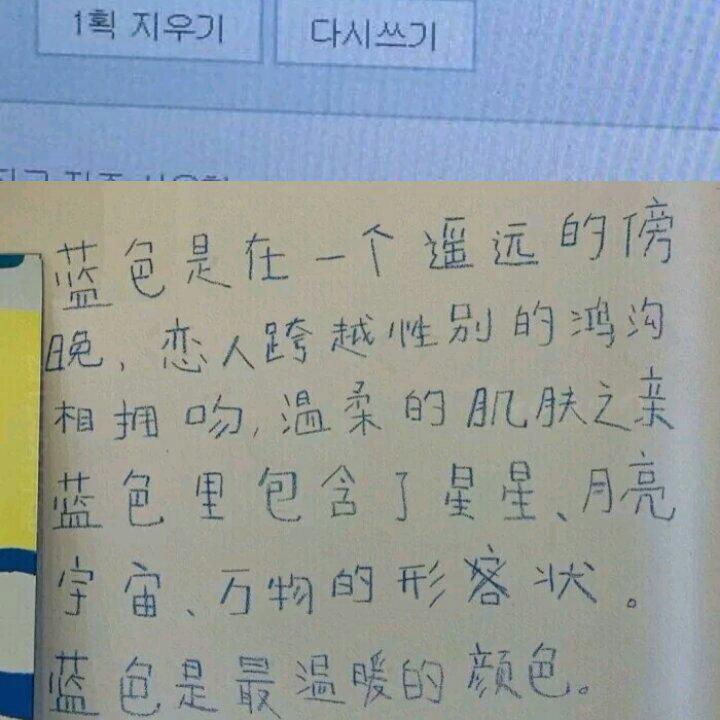 1획 지우기 다시쓰기
蓝色是在一个遥远的傍
晚,恋人跨越性别的鸿沟
相拥吻,温柔的肌肤之亲
蓝色里包含了星星、月亮
宇宙、万物的形状。
蓝色是最温暖的颜色。